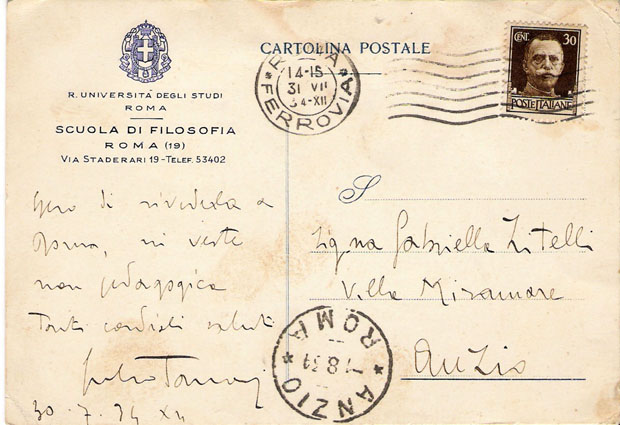 R. UNIVERSITÀ DEGLI STUDI
ROMA
SCUOLA DI FILOSOFIA
ROMA (19)
VIA STADERARI 19 - TELEF. 53402
CARTOLINA POSTALE
ROMA
FERROVIA
14-15
31 VII
34-XII
CENT. 30
POSTE ITALIANE
Spero di rivederla a
Roma, in veste
non pedagogica
Tanti cordiali saluti
30.7.34 XII
S
igna Gabriella Zitelli
Villa Miramare
Anzio
ANZIO
ROMA
1-8 34